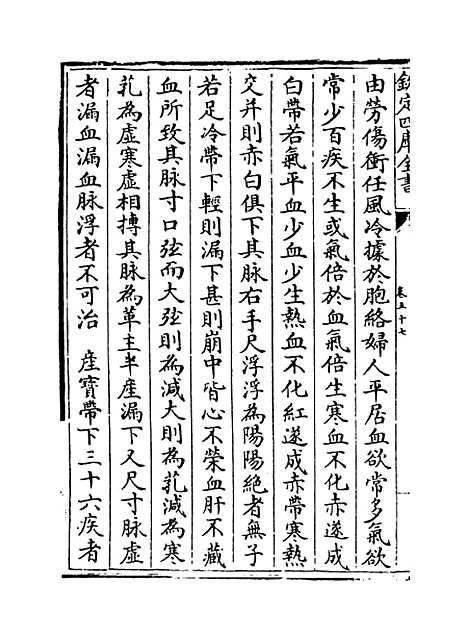 欽定四庫全書
卷五十七
由勞傷衝任風冷據於胞絡婦人平居血欲常多氣欲
常少百疾不生或氣倍於血氣倍生寒血不化赤遂成
白帶若氣平血少血少生熱血不化紅遂成赤帶寒熱
交并則赤白俱下其脉右手尺浮浮為陽陽絶者無子
若足冷帶下輕則漏下甚則崩中皆心不榮血肝不藏
血所致其脉寸口弦而大弦則為減大則為芤減為寒
芤為虛寒虛相搏其脉為革主半産漏下又尺寸脉虛
者漏血漏血脉浮者不可治　産寳帶下三十六疾者